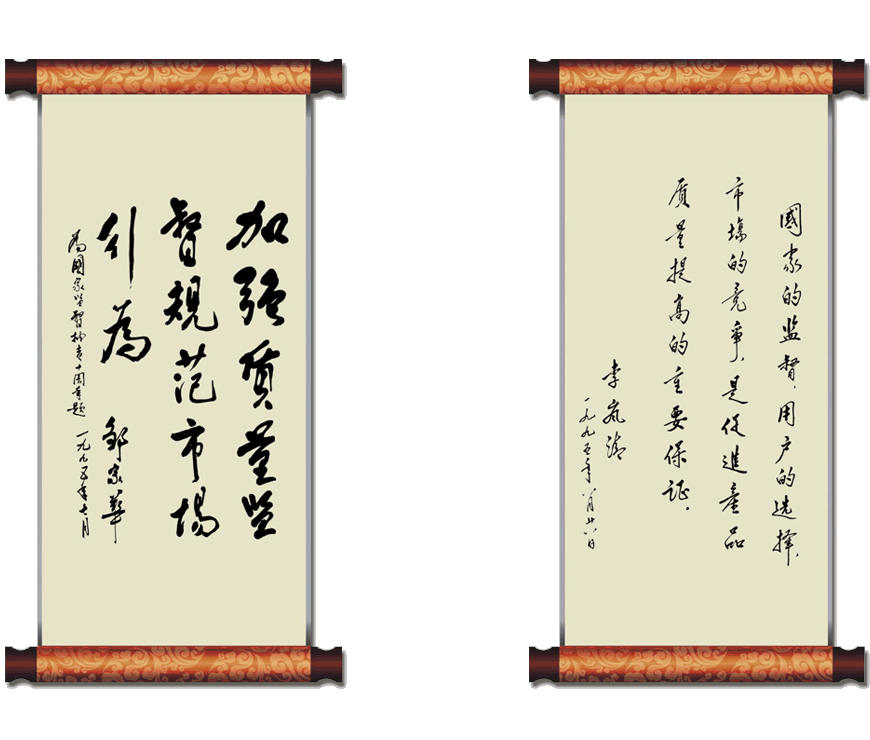 加强质量监
督規范市場
行為
鄒家華
為國家监督抽查十周年題 一九九五年七月
國家的监督，用户的选择，
市場的竞争，是促進產品
质量提高的重要保证。
李岚清
一九九五年八月廿八日